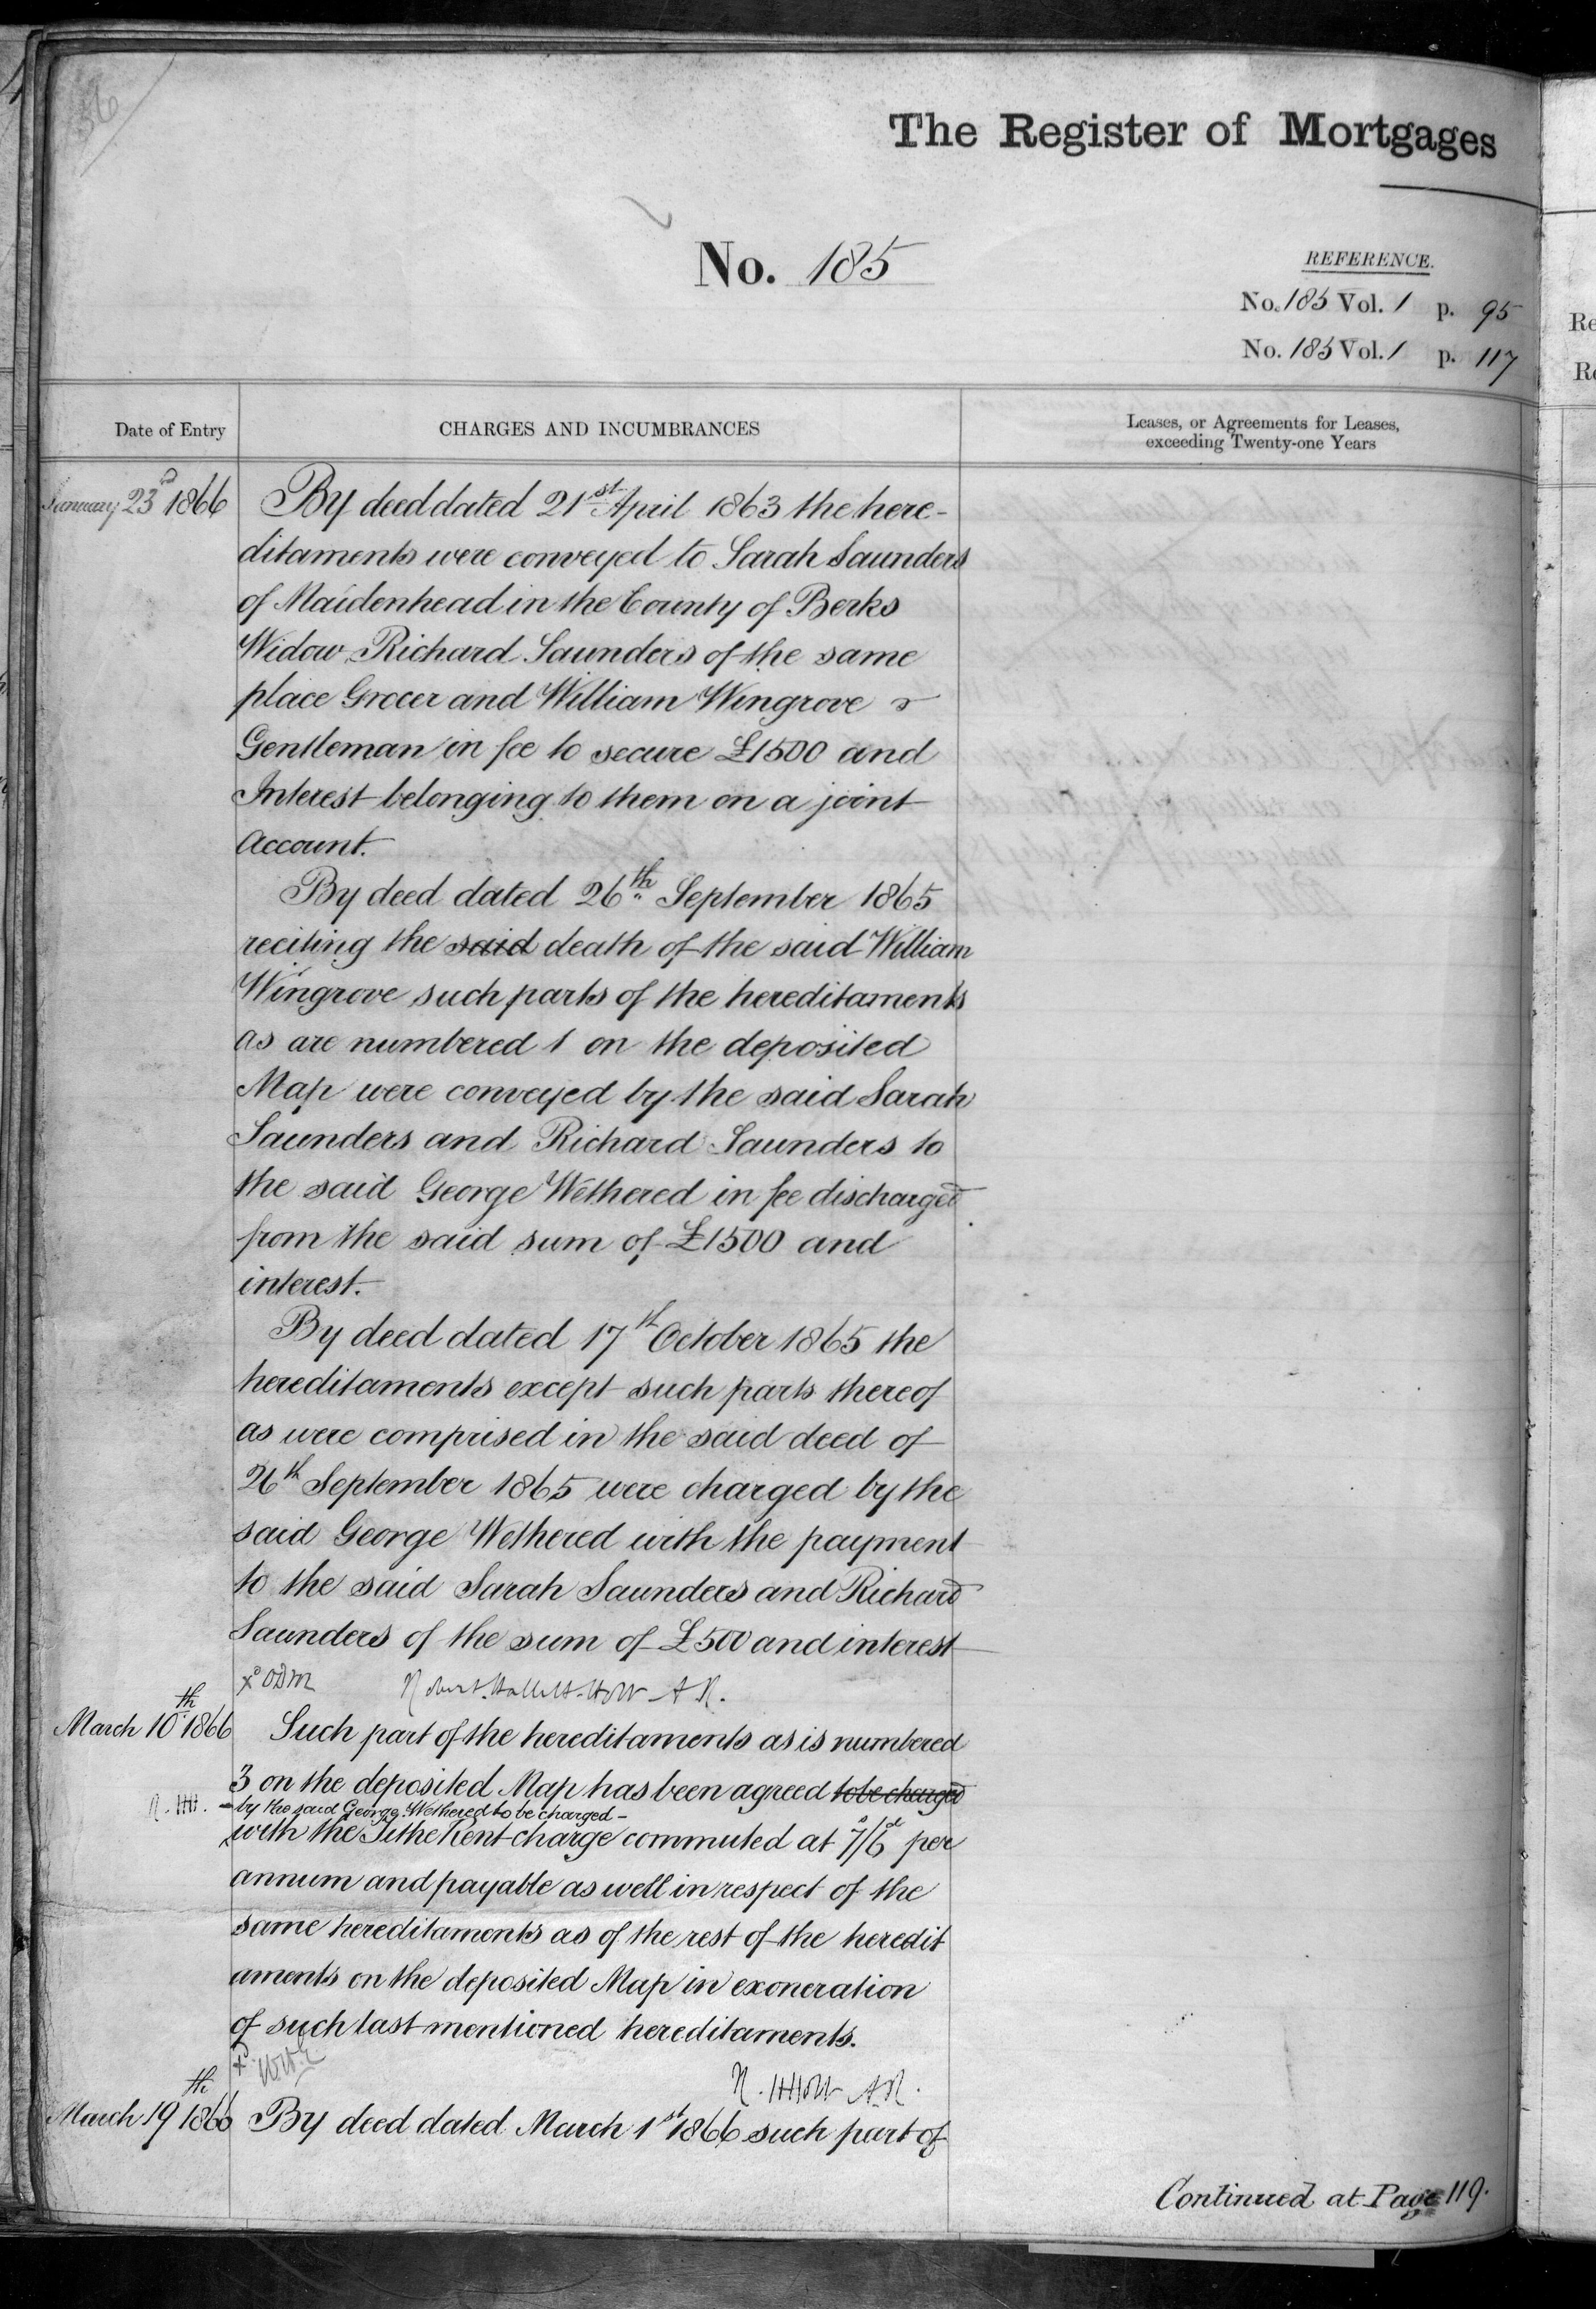 56
The Register of Mortgages
No. 185
REFERENCE.
No. 185 Vol. 1 p. 95
No. 185 Vol. 1 p. 117
Date of Entry
CHARGES AND INCUMBRANCES
Leases, or Agreements for Leases,
exceeding Twenty-one Years
January 23rd 1866
By deed dated 21st April 1863 the here-
ditaments were conveyed to Sarah Saunders
of Maidenhead in the County of Berks
Widow Richard Saunders of the same
place Grocer and William Wingrove
Gentleman in fee to secure £1500 and
Interest belonging to them on a joint
account.
By deed dated 26th September 1865
reciting the said death of the said William
Wingrove such parts of the hereditaments
as are numbered 1 on the deposited
Map were conveyed by the said Sarah
Saunders and Richard Saunders to
the said George Wethered in fee discharged
from the said sum of £1500 and
interest.
By deed dated 17th October 1865 the
hereditaments except such parts thereof
as were comprised in the said deed of
26th September 1865 were charged by the
said George Wethered with the payment
to the said Sarah Saunders and Richard
Saunders of the sum of £500 and interest
Robert Hallett Holt A R.
March 10th 1866
Such part of the hereditaments as is numbered
3 on the deposited Map has been agreed to be charged
by the said George Wethered to be charged
with the Tithe Rent charge commuted at 7s/6d per
annum and payable as well in respect of the
same hereditaments as of the rest of the heredit
aments on the deposited Map in exoneration
of such last mentioned hereditaments.
R. HHolt A.R.
March 19th 1866
By deed dated March 1st 1866 such part of
Continued at Page 119.